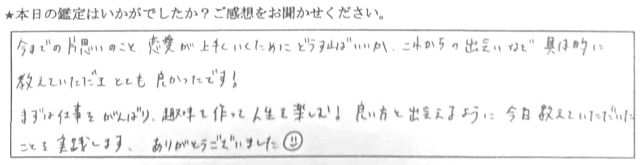 ★本日の鑑定はいかがでしたか？ご感想をお聞かせください。
今までの片思いのこと、恋愛が上手くいくためにどうすればいいか、これからの出会いなど 具体的に
教えていただエとても良かったです！
まずは仕事をがんばり、趣味を作って人生を楽しむ！良い方と出会えるように 今日教えていただいた
ことを実践します。ありがとうございました